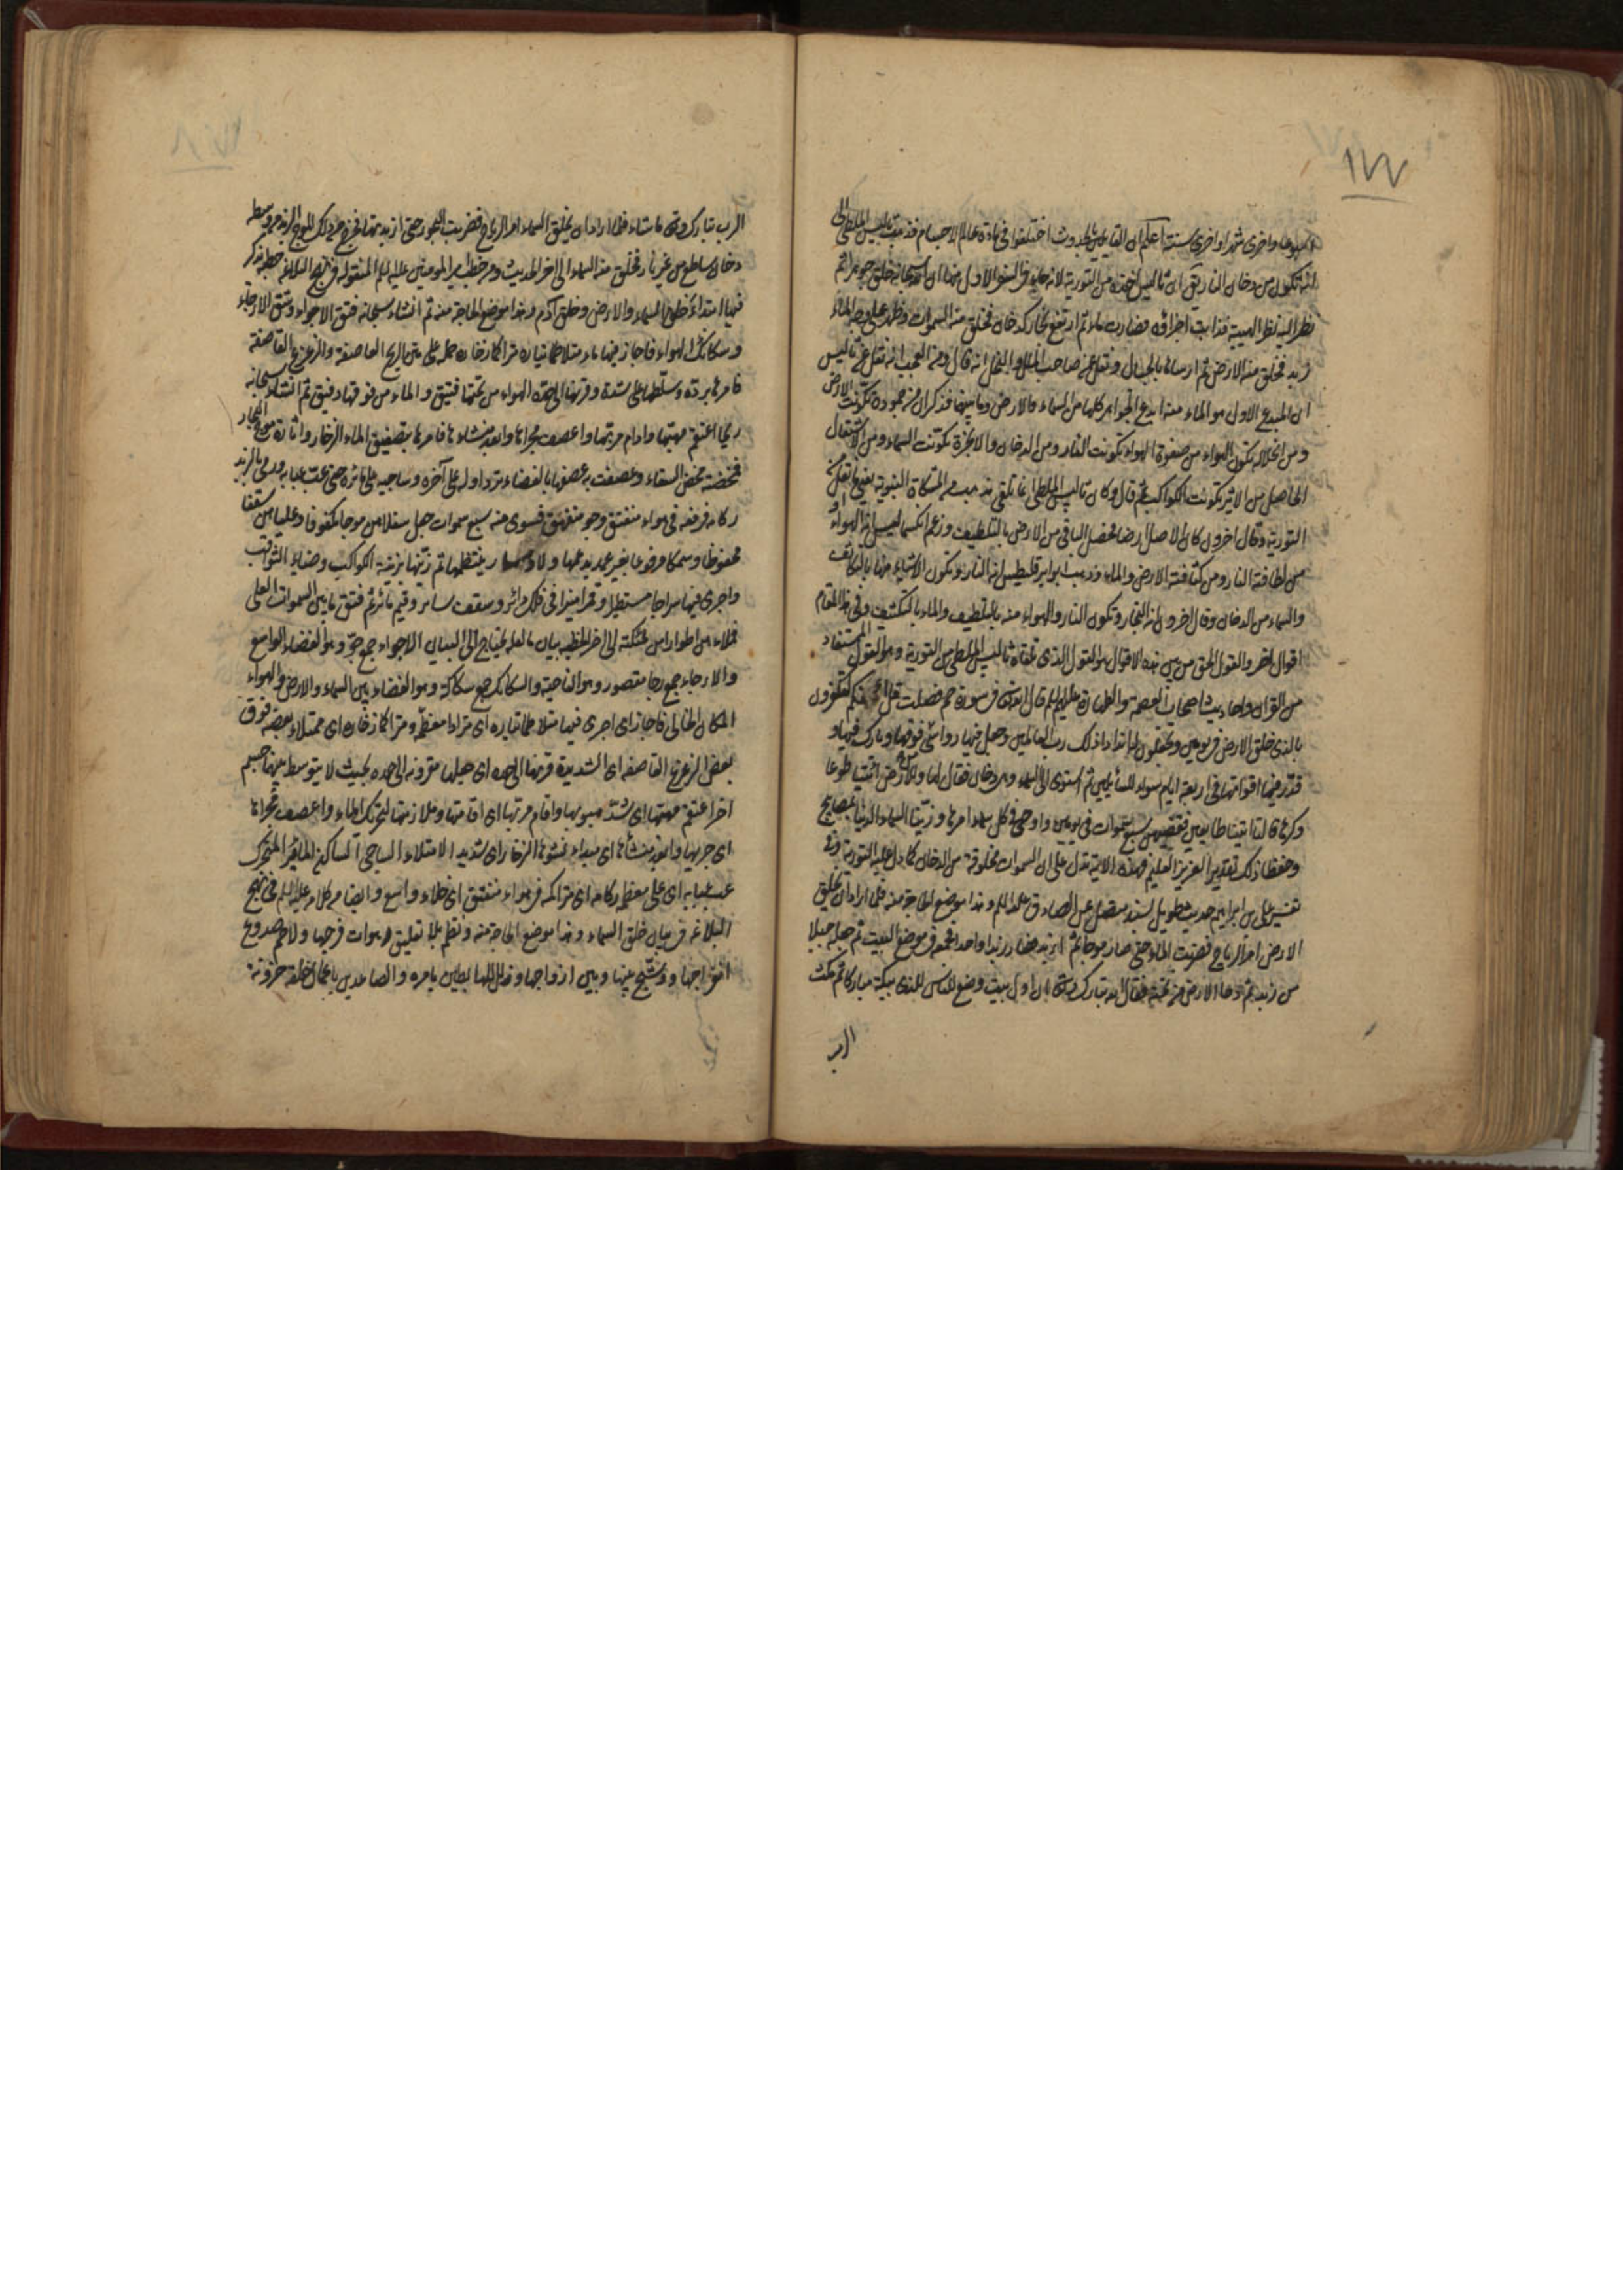 ١٧٧
يوما واخرى شهرا واخرى سنة اعلم ان القايلين بالحدوث اختلفوا فى مادة عالم الاجسام فذهب ثاليس الملطى الى
انه تكون من دخان النار يق ان ثاليس اخذه من التورية لانه جاء فى السفر الاول منها ان الله سبحانه خلق جوهرا ثم
نظر اليه نظر الهيبة فذابت اجزاؤه فصارت ماء ثم ارتفع بخار كدخان فخلق منه السموات وظهر على وجه الماء
زبد فخلق منه الارض ثم ارساها بالجبال ونقل عنه صاحب الملل والنحل انه قال ومن العجب انه نقل عن ثاليس
ان المبدع الاول هو الماء منه ابدع الجواهر كلها من السماء والارض وما بينهما فذكر ان من جموده تكونت الارض
ومن انحلاله تكون الهواء من صفوة الهواء تكونت النار ومن الدخان والابخرة تكونت السماء ومن الاشتعال
الحاصل من الاثير تكونت الكواكب ثم قال وكان ثاليس الملطى انما تلقى مذهبه من المشكاة النبوية يعنى ما نقل عن
التورية وقال اخرون كان الاصل ارضا فحصل الباقى من الارض بالتلطيف وزعم انكسمايس انه الهواء
من لطافته النار ومن كثافته الارض والماء وذهب ابوابرقليطس انه النار وتكون الاشياء منها بالتكاثف
والسماء من الدخان وقال اخرون انه البخار وتكون النار والهواء منه بالتلطيف والماء بالتكثيف وفى هذا المقام
اقوال اخر والقول الحق من بين هذه الاقوال هو القول الذى تلقاه ثاليس الملطى من التورية وهو القول المستفاد
من القران واحاديث اصحاب العصمة والطهارة عليهم السلام قال الله تعالى فى سورة حم فصلت قل ائنكم لتكفرون
بالذى خلق الارض فى يومين وتجعلون له اندادا ذلك رب العالمين وجعل فيها رواسى من فوقها وبارك فيها و
قدر فيها اقواتها فى اربعة ايام سواء للسائلين ثم استوى الى السماء وهى دخان فقال لها وللارض ائتيا طوعا
وكرها قالتا اتينا طايعين فقضيهن سبع سموات فى يومين واوحى فى كل سماء امرها وزينا السماء الدنيا بمصابيح
وحفظا ذلك تقدير العزيز العليم فهذه الاية تدل على ان السموات مخلوقة من الدخان كما دل عليه التورية وفى
تفسير على بن ابراهيم حديث طويل بسند متصل عن الصادق عليه السلام وهذا موضع الحاجة منه فلما اراد ان يخلق
الارض امر الرياح فضربت الماء حتى صار موجا ثم ازبد فصار زبدا واحدا فجمعه فى موضع البيت ثم جعله جبلا
من زبد ثم دحا الارض من تحته فقال الله تبارك وتعالى ان اول بيت وضع للناس للذى ببكة مباركا ثم مكث
الرب
الرب تبارك وتعالى ما شاء فلما اراد ان يخلق السماء امر الرياح فضربت البحور حتى ازبدتها فخرج من ذلك الموج والزبد من وسطه
دخان ساطع من غير نار فخلق منه السماء الى اخر الحديث ومن خطب امير المؤمنين عليه السلم المنقولة فى نهج البلاغة خطبة يذكر
فيها ابتداء خلق السماء والارض وخلق آدم وهذا موضع الحاجة منه ثم انشاء سبحانه فتق الاجواء وشق الارجاء
وسكائك الهواء فاجاز فيها ماء متلاطما تياره متراكما زخاره حمله على متن الريح العاصفة والزعزع القاصفة
فامرها برده وسلطها على شده وقرنها الى حده الهواء من تحتها فتيق والماء من فوقها دفيق ثم انشاء سبحانه
ريحا اعتقم مهبها وادام مربها واعصف مجراها وابعد منشاءها فامرها بتصفيق الماء الزخار واثارة موج البحار
فمخضته مخض السقاء وعصفت به عصفها بالفضاء ترد اوله على آخره وساجيه على مائره حتى عب عبابه ورمى بالزبد
ركامه فرفعه فى هواء منفتق وجو منفهق فسوى منه سبع سموات جعل سفلاهن موجا مكفوفا وعلياهن سقفا
محفوظا وسمكا مرفوعا بغير عمد يدعمها ولا دسار ينتظمها ثم زينها بزينة الكواكب وضياء الثواقب
واجرى فيها سراجا مستطيرا وقمرا منيرا فى فلك دائر وسقف سائر ورقيم مائر ثم فتق ما بين السموات العلى
فملاءهن اطوارا من ملئكته الى اخر الخطبه بيان ما لعله يحتاج الى البيان الاجواء جمع جو وهو الفضاء الواسع
والارجاء جمع رجا مقصور وهو الناحية والسكائك جمع سكاكة وهو الفضاء بين السماء والارض والهواء
المكان الخالى فاجاز اى اجرى فيها متلاطما تياره اى مترادا معظمه ومتراكما زخاره اى ممتلاء بعضه فوق
بعض الزعزع القاصفه اى الشديدة قرنها الى حده اى جعلها مقرونه الى حده بحيث لا يتوسط بينهما جسم
اخر اعتقم مهبها اى شد هبوبها واقام مربها اى اقامتها وملازمتها لتحريك الماء واعصف مجراها
اى جريها وابعد منشاها اى مبداء نشوها الزخار اى شديد الامتلاء الساجى الساكن المائر المتحرك
عب عبابه اى على معظمه ركامه اى متراكمه فى هواء منفتق اى خلاء واسع وايضا من كلامه عليه السلم فى نهج
البلاغه فى بيان خلق السماء وهذا موضع الحاجة منه ونظم بلا تعليق رهوات فرجها ولاحم صدوع
انفراجها ووشج بينها وبين ازواجها وذلل للهابطين بامره والصاعدين باعمال خلقه حزونة